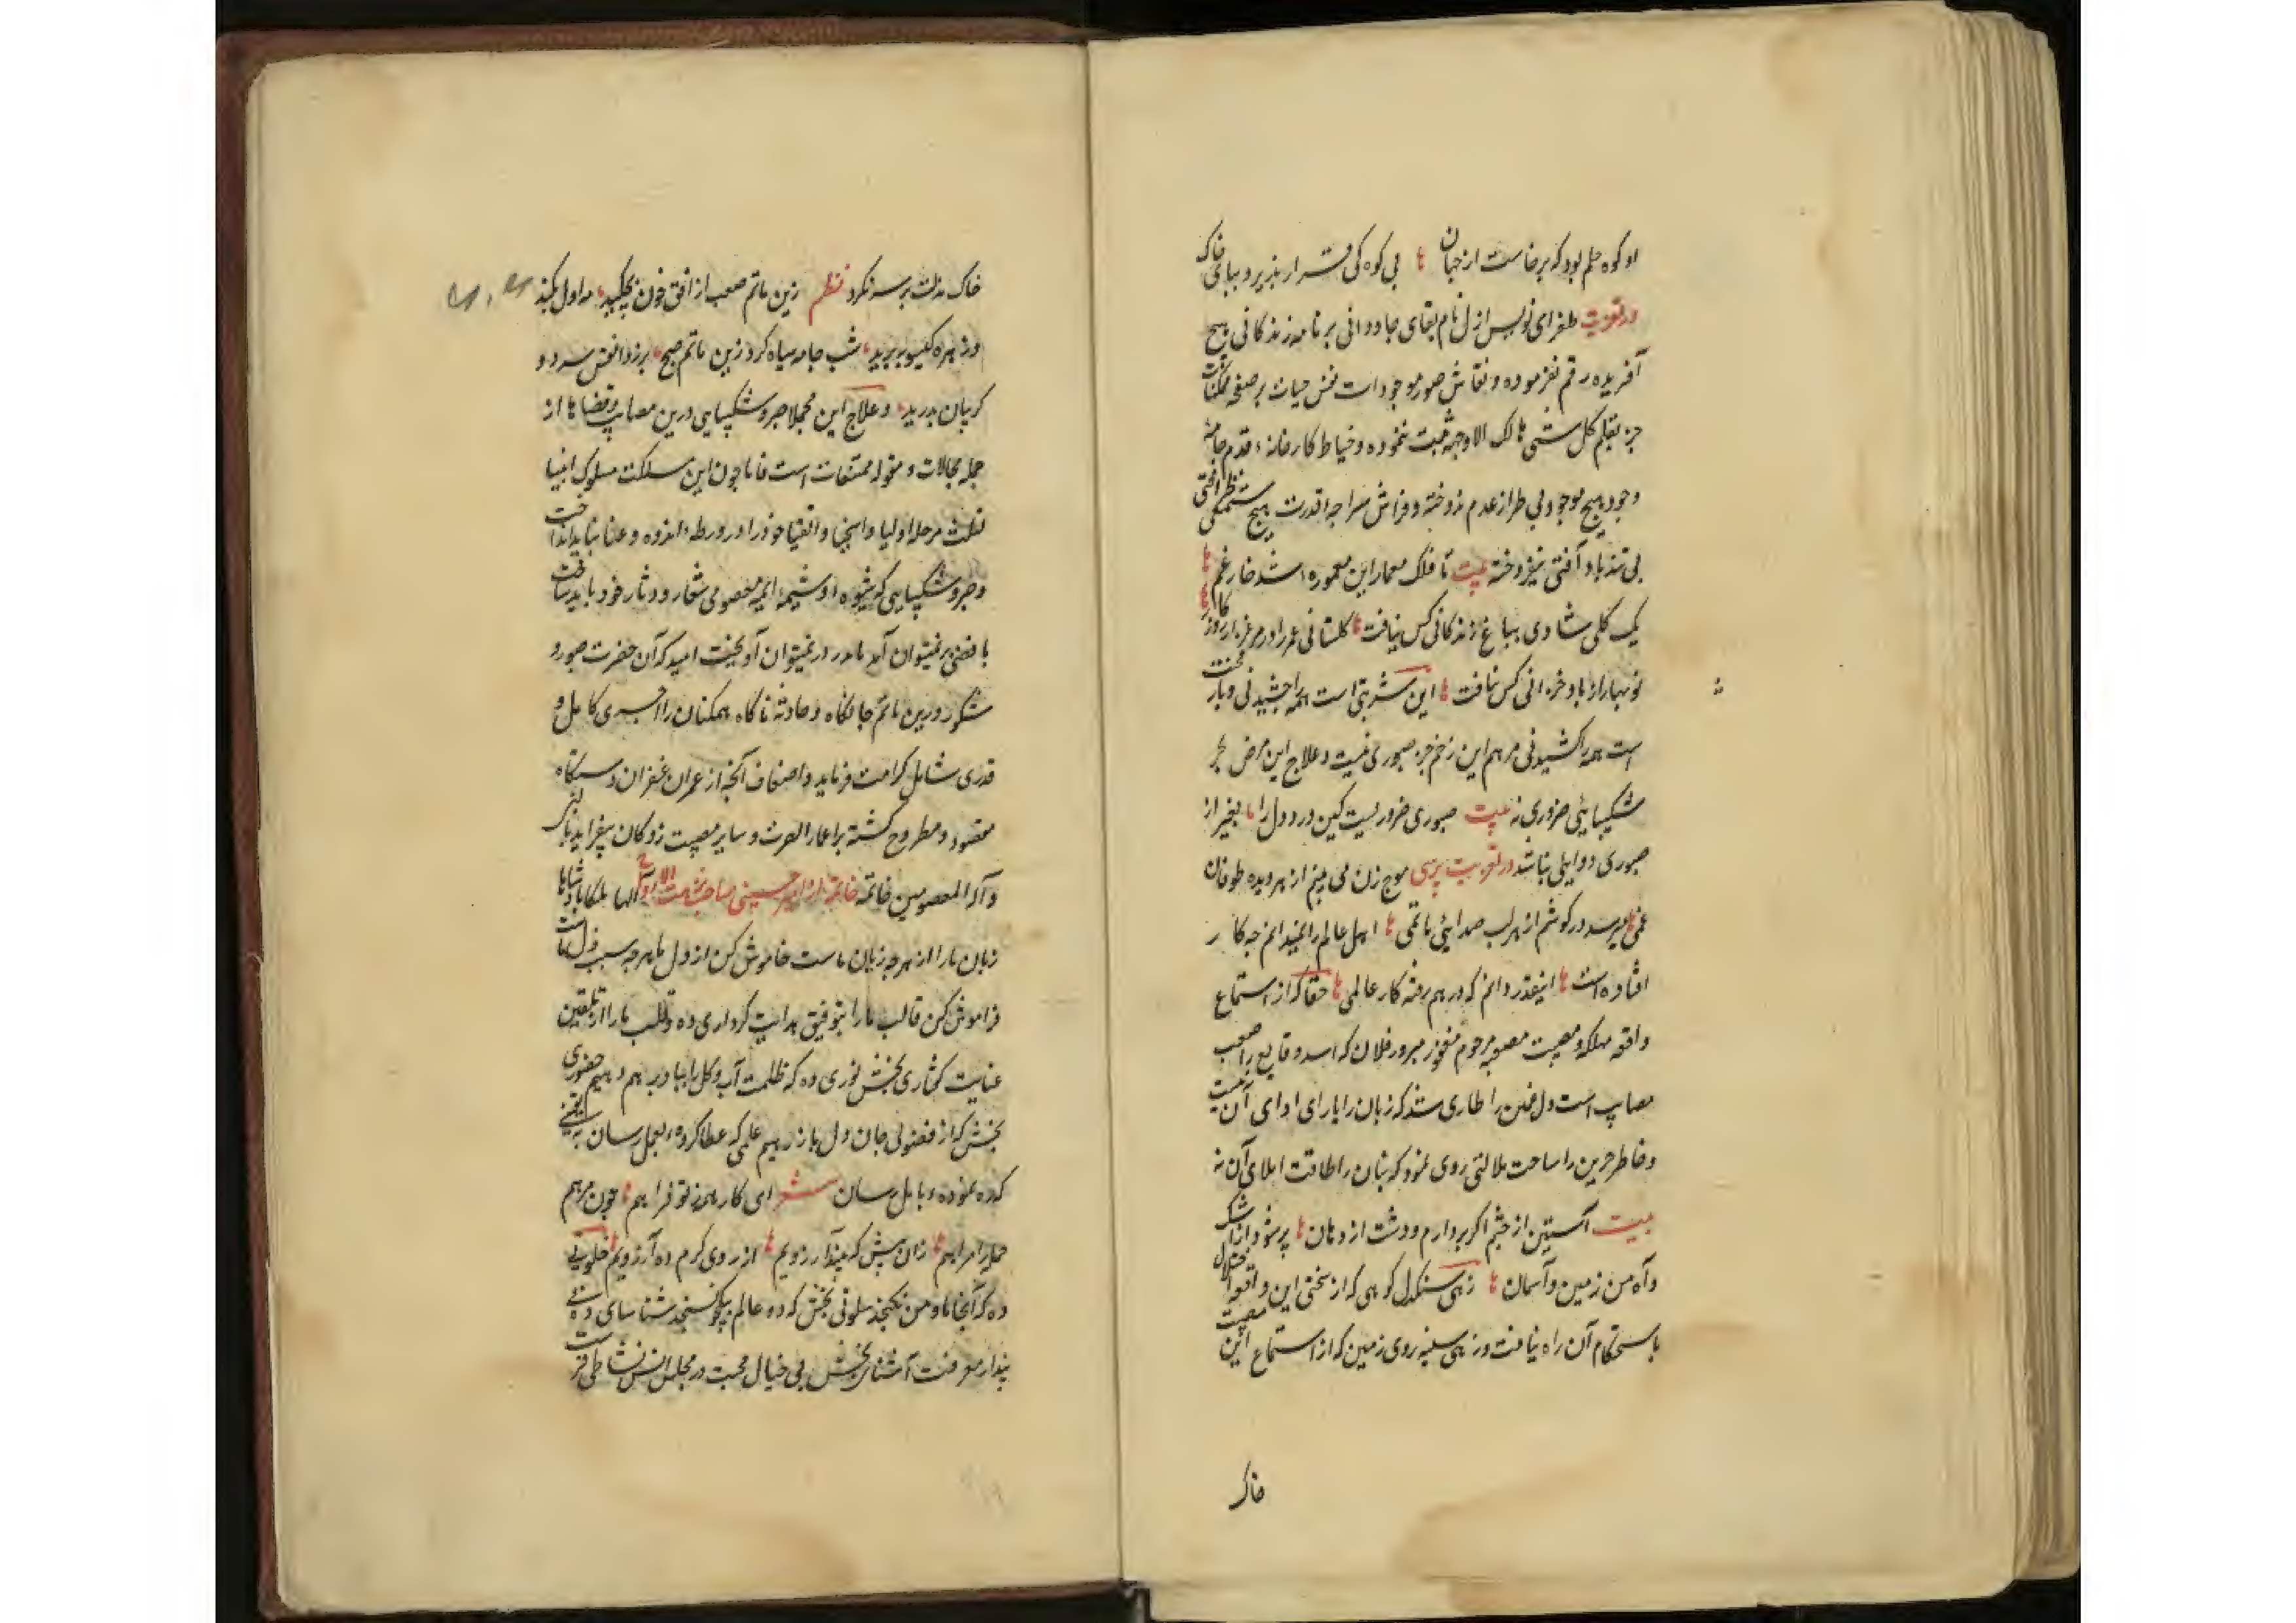 او کوه حلم بود که برخاست از جهان بی کوه کی قرار پذیرد بنای خاک
در تعزیت طغرای نویس ازل نام بقای جاودانی بر نامه زندکانی هیچ
آفریده رقم نفرموده و نقاش صور موجودات نقش حیات بر صفحه ممکنات
جز بقلم کل شی هالک الا وجهه ثبت ننموده و خیاط کارخانه قدم جامه
وجود هیچ موجود بی طراز عدم ندوخته و فراش سراچه قدرت هیچ
بی تندباد آفتی نیفروخته بیت تا فلک معمار این معموره شد خار غم
یک کلی شادی بباغ زندکانی کس نیافت کلستانی عمر را در مرغزار روزکار
نوبهار از باد خزانی کس نیافت این شربتی است همه را چشیدنی و بار محنت
است همه را کشیدنی مرهم این زخم جز صبوری نیست و علاج این مرض بجز
شکیبائی ضروری نه بیت صبوری ضروریست کین درد دل را بغیر از
صبوری دوایی نباشد در تعزیت پرسی موج زن می بینم از هر دیده طوفان
غمی میرسد در کوشم از هر لب صدایی ماتمی اهل عالم را نمیدانم چه کار
افتاده است اینقدر دانم که در هم رفته کار عالمی حقا که از استماع
واقعه مهلکه و مصیبت مصعبه مرحوم مغفور مبرور فلان که اشد وقایع و اصعب
مصایب است دل غمین را طاری شد که زبان را یارای ادای آن نیست
و خاطر حزین را ساحت ملالتی روی نمود که بنان را طاقت املای آن نه
بیت آستین از چشم اکر بردارم و دست از دهان پر شود از اشک
و آه من زمین و آسمان زهی سنکدل کوهی که از سختی این واقعه اختلال
باستحکام آن راه نیافت و زهی سفیه روی زمین که از استماع این مصیبت
خاک
خاک مذلت بر سر نکرد نظم زین ماتم صعب از افق خون بچکید مه اول بکند
وز زهره کیسو ببرید شب جامه سیاه کرد زین ماتم صبح برزد نفس سرد و
کریبان بدرید و علاج این مجملا صبر و شکیبایی درین مصایب و قضاها از
جمله محالات و مقوله ممتنعات است فاما چون این مسلکت مسلوک انبیا
مرحله اولیا و اسخیا و اتقیا خود را در ورطه اندوه و عنا نباید انداخت
و صبر و شکیبایی که شیوه و شیمه ائمه معصومی شعار و دثار خود باید ساخت
با قضا بر نمیتوان آمد با قدر در نمیتوان آویخت امید که آن حضرت صبور و
شکور درین ماتم جانکاه و حادثه ناکاه همکنان را اجری کامل و
قدری شامل کرامت فرماید و اضعاف آنچه از عمران غفران دستکاه
مفقود و مطروح کشته بر اعمار و سایر مصیبت زدکان بیفزاید
و آله المعصومین خاتمه خاتمه از میر حسینی صاحب نزهت الارواح الها ملکا پادشاها
زبان ما را از هر چه زیان ماست خاموش کن از دل ما هر چه سبب ماست
فراموش کن قالب ما را بتوفیق هدایت کرداری ده و قلب ما را از تلقین
عنایت کفتاری بخش نوری ده که ظلمت آب و کل را بباد بر دهیم حضوری
بخش که از فضولی جان و دل باز رهیم علمی که عطا کرده بعمل رسان
که ده نموده بامل رسان شعر ای کار همه ز تو فراهم چون مرهم
جمله را مراهم زان پیش که ازروی کرم ده آرزویم خلوتی
ده که آنجا ما و من نکنجد سلوتی بخش که دو عالم بیکجو نسنجد شناسای ده
پندار معرفت آشنائی بخش بی خیال محبت در مجلس انس نشاطی